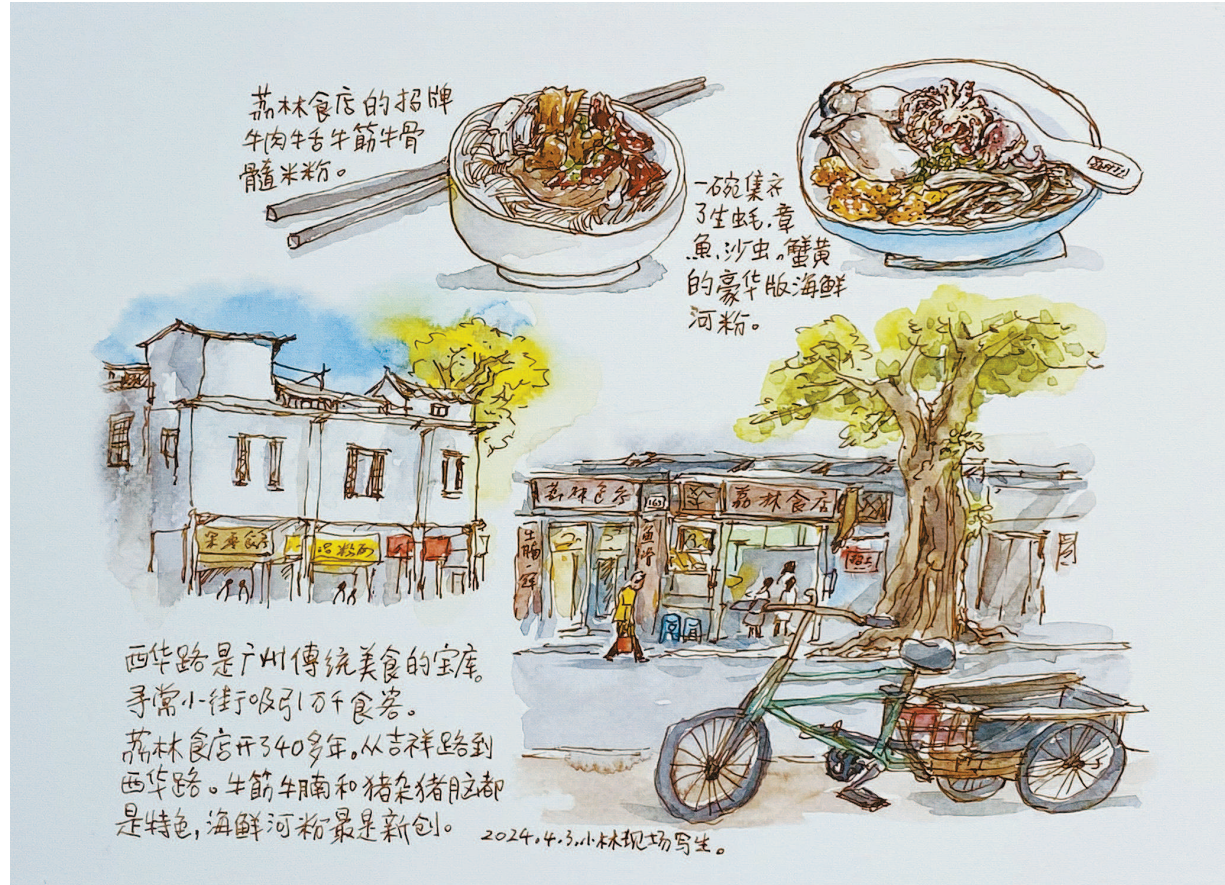 荔林食店的招牌
牛肉牛舌牛筋牛骨
髓米粉。
一碗集齐
了生蚝、章
魚、沙虫、蟹黄
的豪华版海鲜
河粉。
荔林食店
163
荔林食店
西华路是广州傳统美食的宝库。
寻常小街吸引万千食客。
荔林食店开了40多年。从吉祥路到
西华路。牛筋牛腩和猪杂猪脑都
是特色,海鲜河粉最是新创。
2024.4.3.小林现场写生。